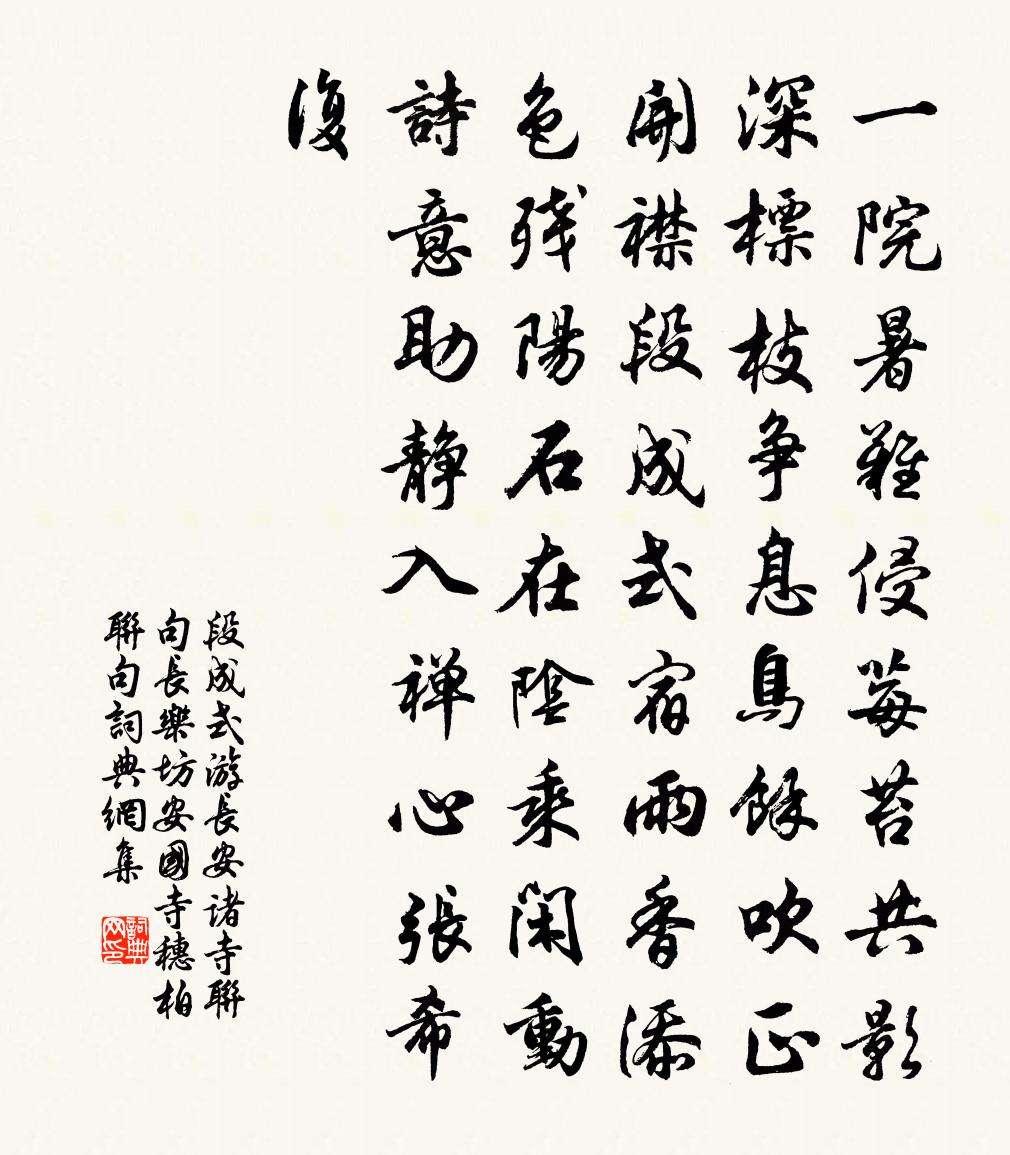 一院暑難侵莓苔共影
深標枝争息鳥餘吹正
開襟段成式宿雨香添
色残陽石在陰乘閑動
詩意助静入禅心張希
復
段成式游長安诸寺聯
句長樂坊安國寺穗柏
聯句詞典網集
詞典网印